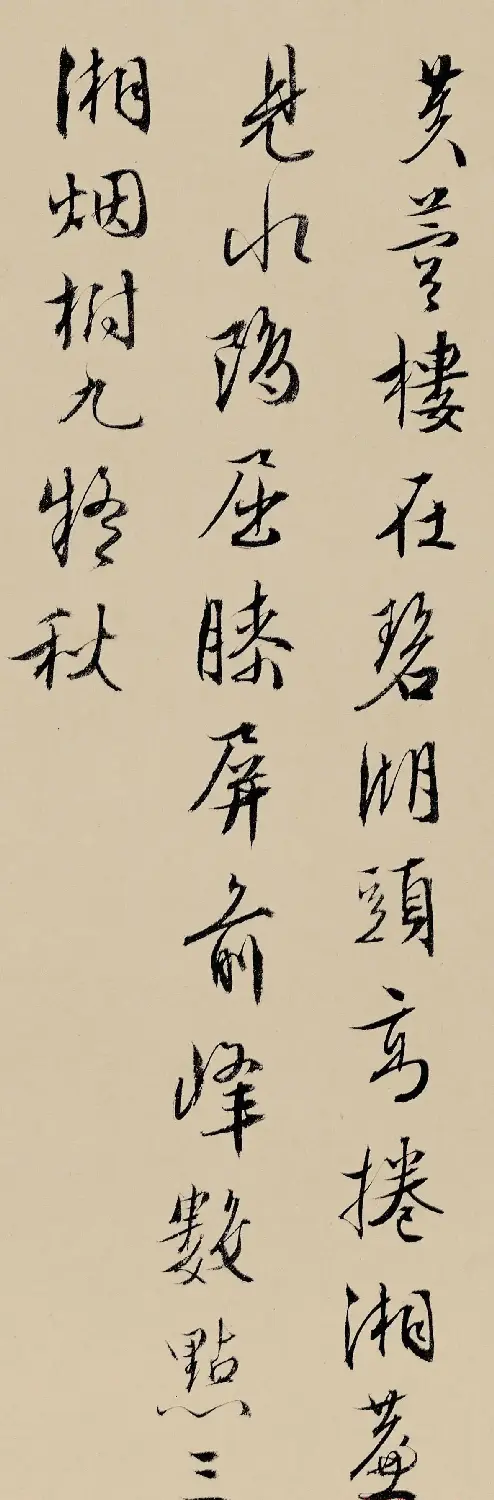 芙蓉樓在碧湖頭高捲湘簾
見水鷗屈膝屏前峰數點三
湘烟樹九疑秋